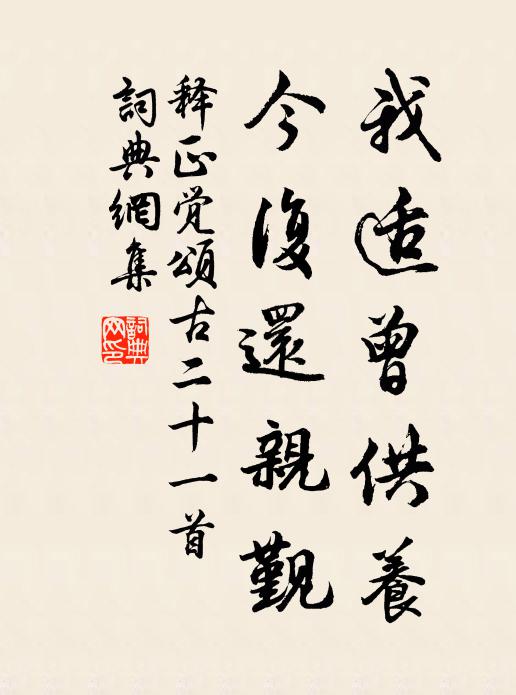 我适曾供養
今復還親覲
释正覚頌古二十一首
詞典網集
詞典网印